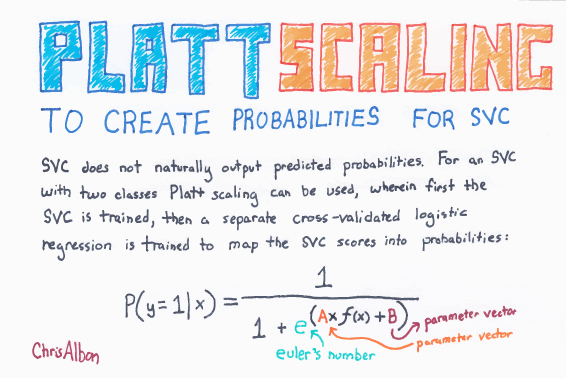 PLATT SCALING
TO CREATE PROBABILITIES FOR SVC
SVC does not naturally output predicted probabilities. For an SVC
with two classes Platt scaling can be used, wherein first the
SVC is trained, then a separate cross-validated logistic
regression is trained to map the SVC scores into probabilities:
P(y=1|x) = 1 / 1 + e^(A x f(x) + B)
parameter vector
parameter vector
euler's number
Chris Albon